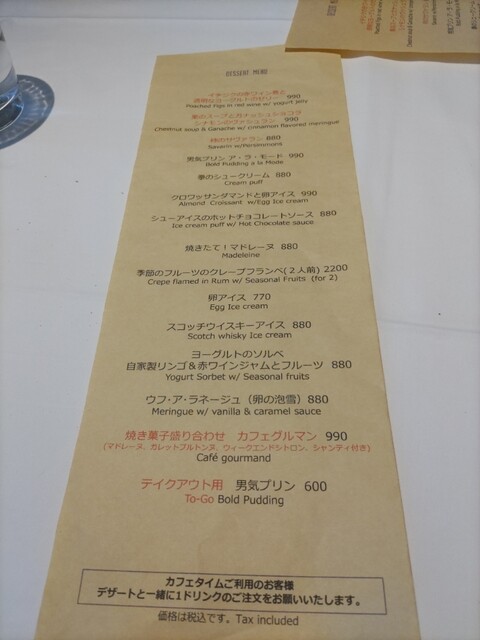 DESSERT MENU
イチジクの赤ワイン煮と
透明なヨーグルトのゼリー 990
Poached Figs in red wine w/ yogurt jelly
栗のスープとガナッシュショコラ
シナモンのヴァシュラン 990
Chestnut soup & Ganache w/ cinnamon flavored meringue
柿のサヴァラン 880
Savarin w/Persimmons
男気プリン ア・ラ・モード 990
Bold Pudding a la Mode
夢のシュークリーム 880
Cream puff
クロワッサンダマンドと卵アイス 990
Almond Croissant w/Egg Ice cream
シューアイスのホットチョコレートソース 880
Ice cream puff w/ Hot Chocolate sauce
焼きたて！マドレーヌ 880
Madeleine
季節のフルーツのクレープフランベ(２人前) 2200
Crepe flamed in Rum w/ Seasonal Fruits (for 2)
卵アイス 770
Egg Ice cream
スコッチウイスキーアイス 880
Scotch whisky Ice cream
ヨーグルトのソルベ
自家製リンゴ＆赤ワインジャムとフルーツ 880
Yogurt Sorbet w/ Seasonal fruits
ウフ・ア・ラネージュ（卵の泡雪）880
Meringue w/ vanilla & caramel sauce
焼き菓子盛り合わせ カフェグルマン 990
(マドレーヌ、ガレットブルトンヌ、ウィークエンドシトロン、シャンティ付き)
Café gourmand
テイクアウト用 男気プリン 600
To-Go Bold Pudding
カフェタイムご利用のお客様
デザートと一緒に1ドリンクのご注文をお願いいたします。
価格は税込です。Tax included